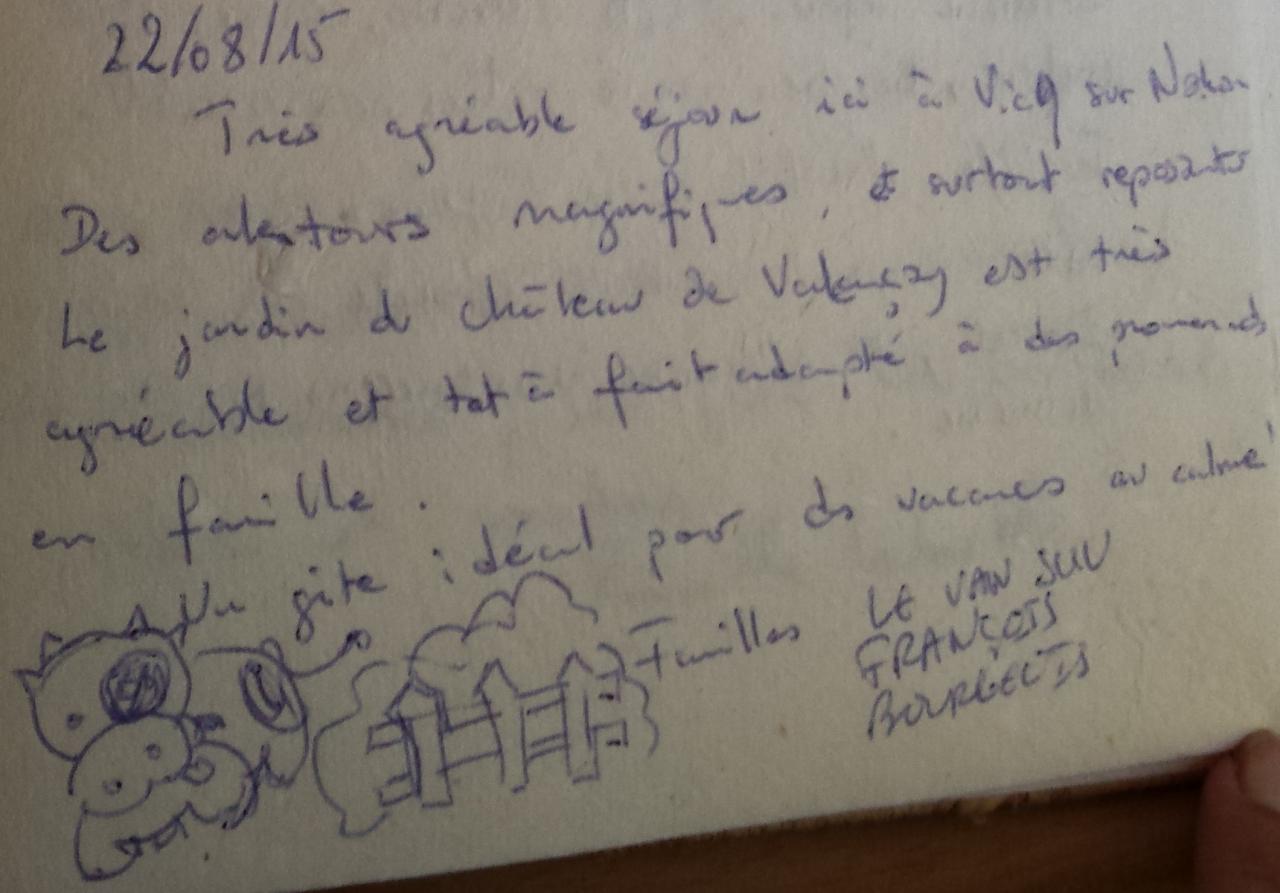 22/08/15
Très agréable séjour ici à Vicq sur Nahon
Des alentours magnifiques, et surtout reposants
Le jardin du château de Valençay est très
agréable et tout à fait adapté à des promenades
en famille.
Un gîte idéal pour des vacances au calme!
Familles LE VAN SUU
FRANÇOIS
BOURGEOIS